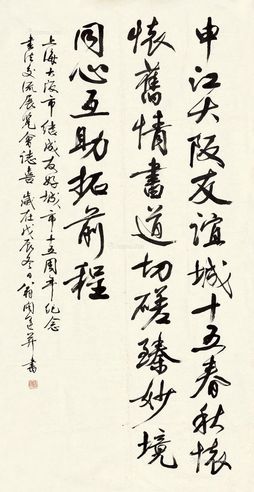 申江大阪友谊城十五春秋懷
懷舊情書道切磋臻妙境
同心互助拓前程
上海大阪市结成友好城市十五周年纪念
書法交流展览會誌喜 歲在戊辰冬日 翁闓運并書